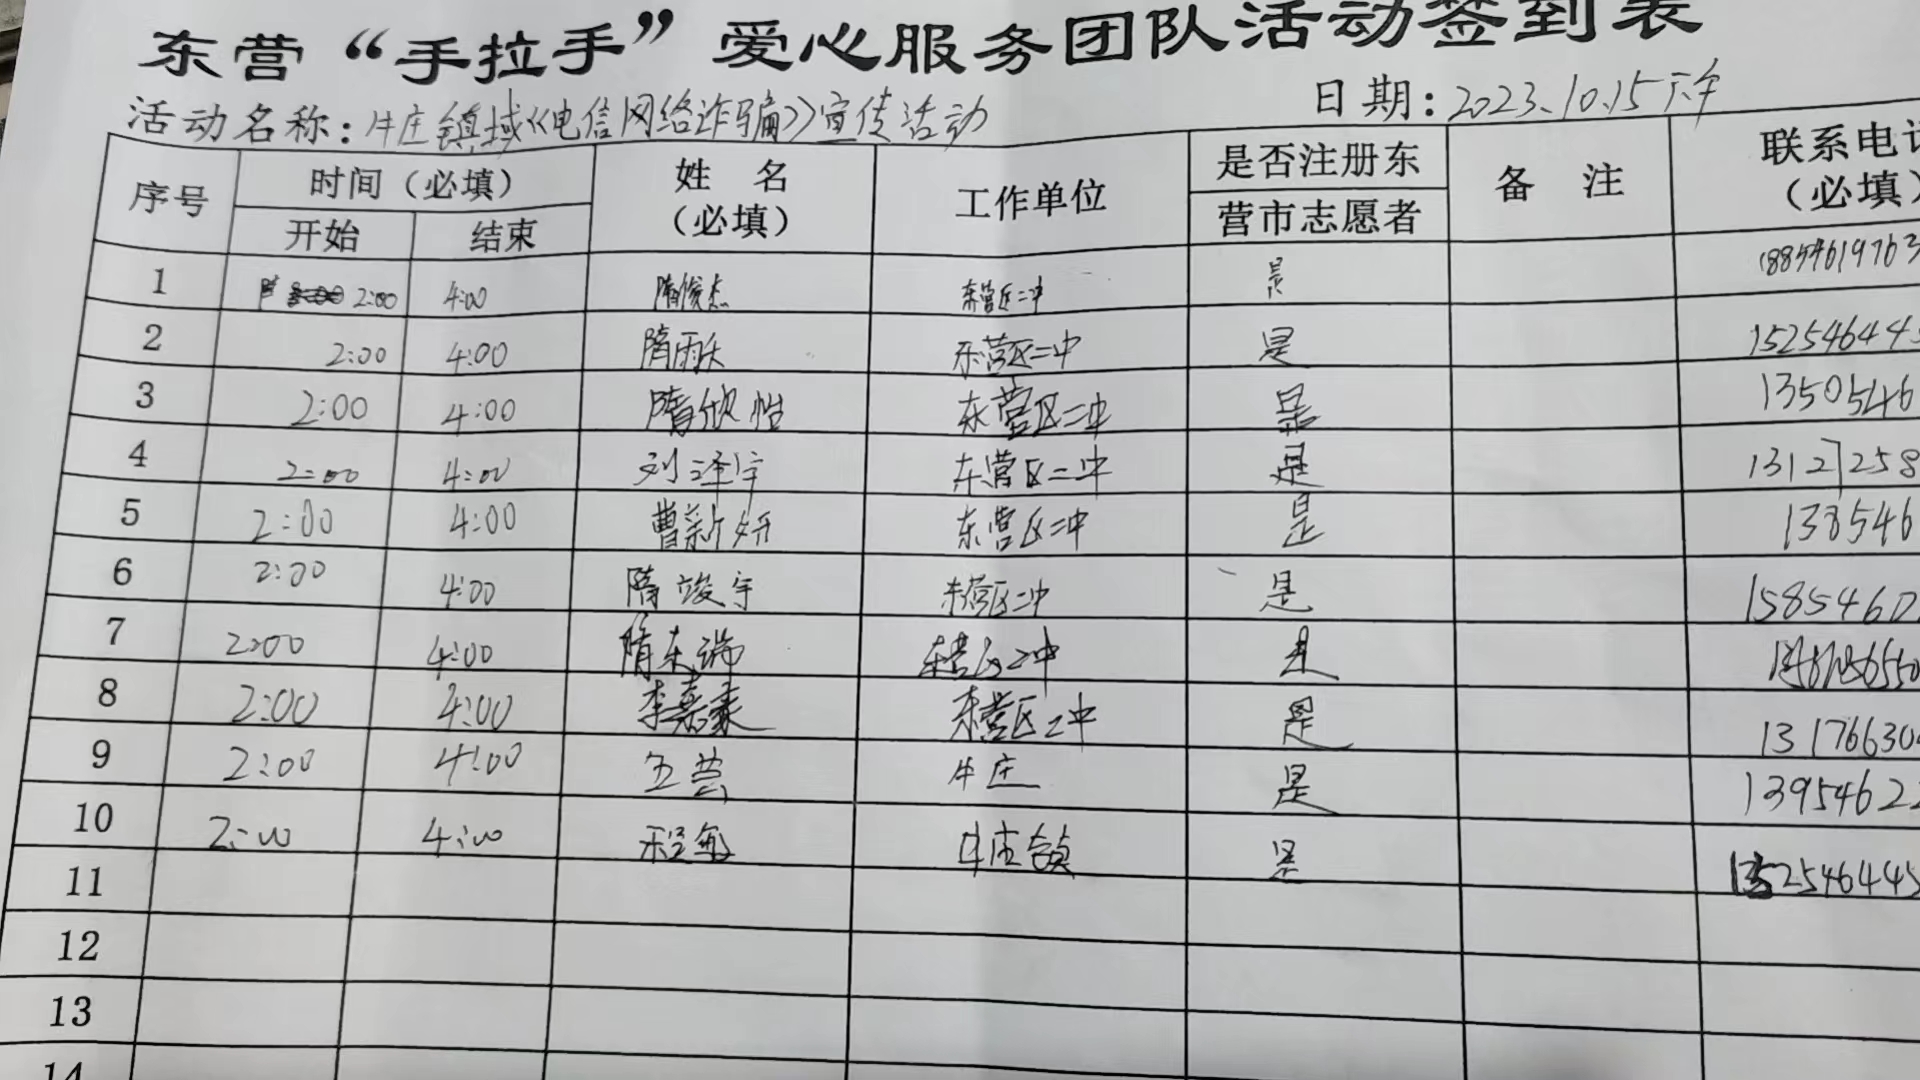 东营“手拉手”爱心服务团队活动签到表
活动名称：牛庄镇域《电信网络诈骗》宣传活动 日期：2023.10.15下午
序号 时间（必填） 姓 名（必填） 工作单位 是否注册东营市志愿者 备 注 联系电话（必填）
开始 结束
1 2:00 4:00 隋俊杰 东营区二中 是 18854619763
2 2:00 4:00 隋雨 东营区二中 是 152546445
3 2:00 4:00 隋欣怡 东营区二中 是 1350546
4 2:00 4:00 刘泽宇 东营区二中 是 13127258
5 2:00 4:00 曹新妍 东营区二中 是 138546
6 2:00 4:00 隋竣宇 东营区二中 是 1585460
7 2:00 4:00 隋东瑞 东营区二中 是
8 2:00 4:00 李嘉 东营区二中 是 13176630
9 2:00 4:00 牛庄 是 13954622
10 2:00 4:00 程敏 牛庄镇 是 152546445
11
12
13
14